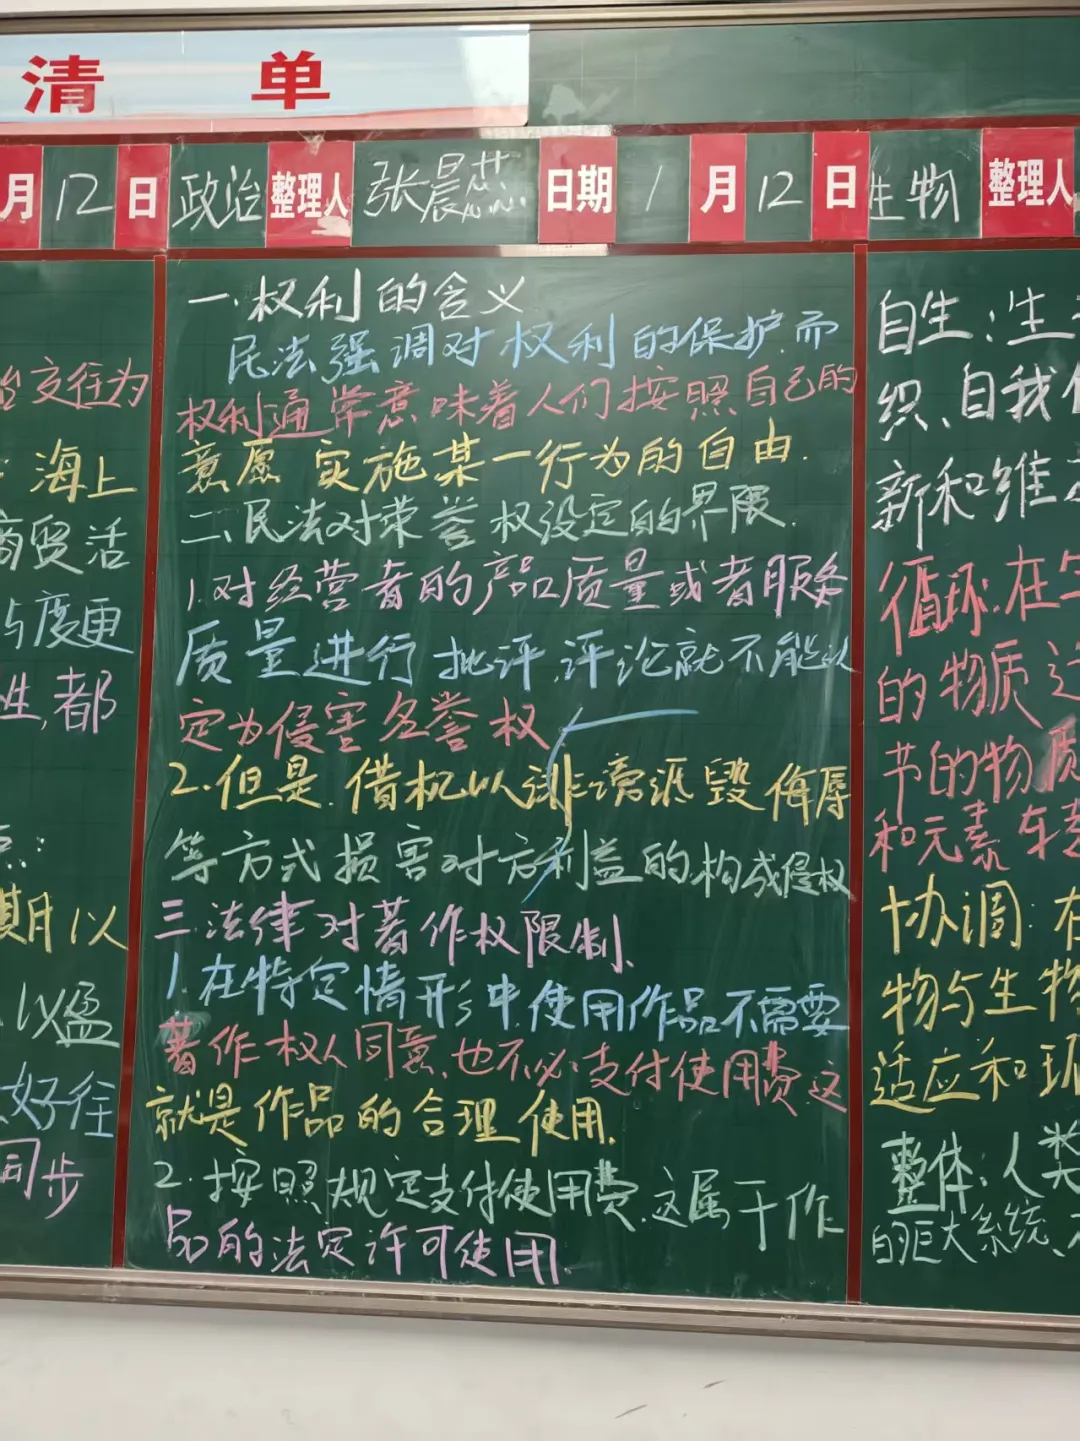 清 单
月 12 日 政治 整理人 张晨蕊 日期 1 月 12 日 生物 整理人
交往为
海上
商贸活
与度更
性,都
期以
以盈
好往
同步
一.权利的含义
民法强调对权利的保护.而
权利通常意味着人们按照自己的
意愿实施某一行为的自由.
二、民法对荣誉权设定的界限.
1.对经营者的产品质量或者服务
质量进行批评,评论就不能认
定为侵害名誉权
2.但是.借机以诽谤诋毁侮辱
等方式损害对方利益的.构成侵权
三.法律对著作权限制、
1.在特定情形中,使用作品不需要
著作权人同意,也不必支付使用费,这
就是作品的合理使用.
2.按照规定支付使用费.这属于作
品的法定许可使用.
自生:生
织、自我
新和维
循环:在生
的物质
节的物质
和元素
协调:在
物与生物
适应和环
整体:人类
的巨大系统、